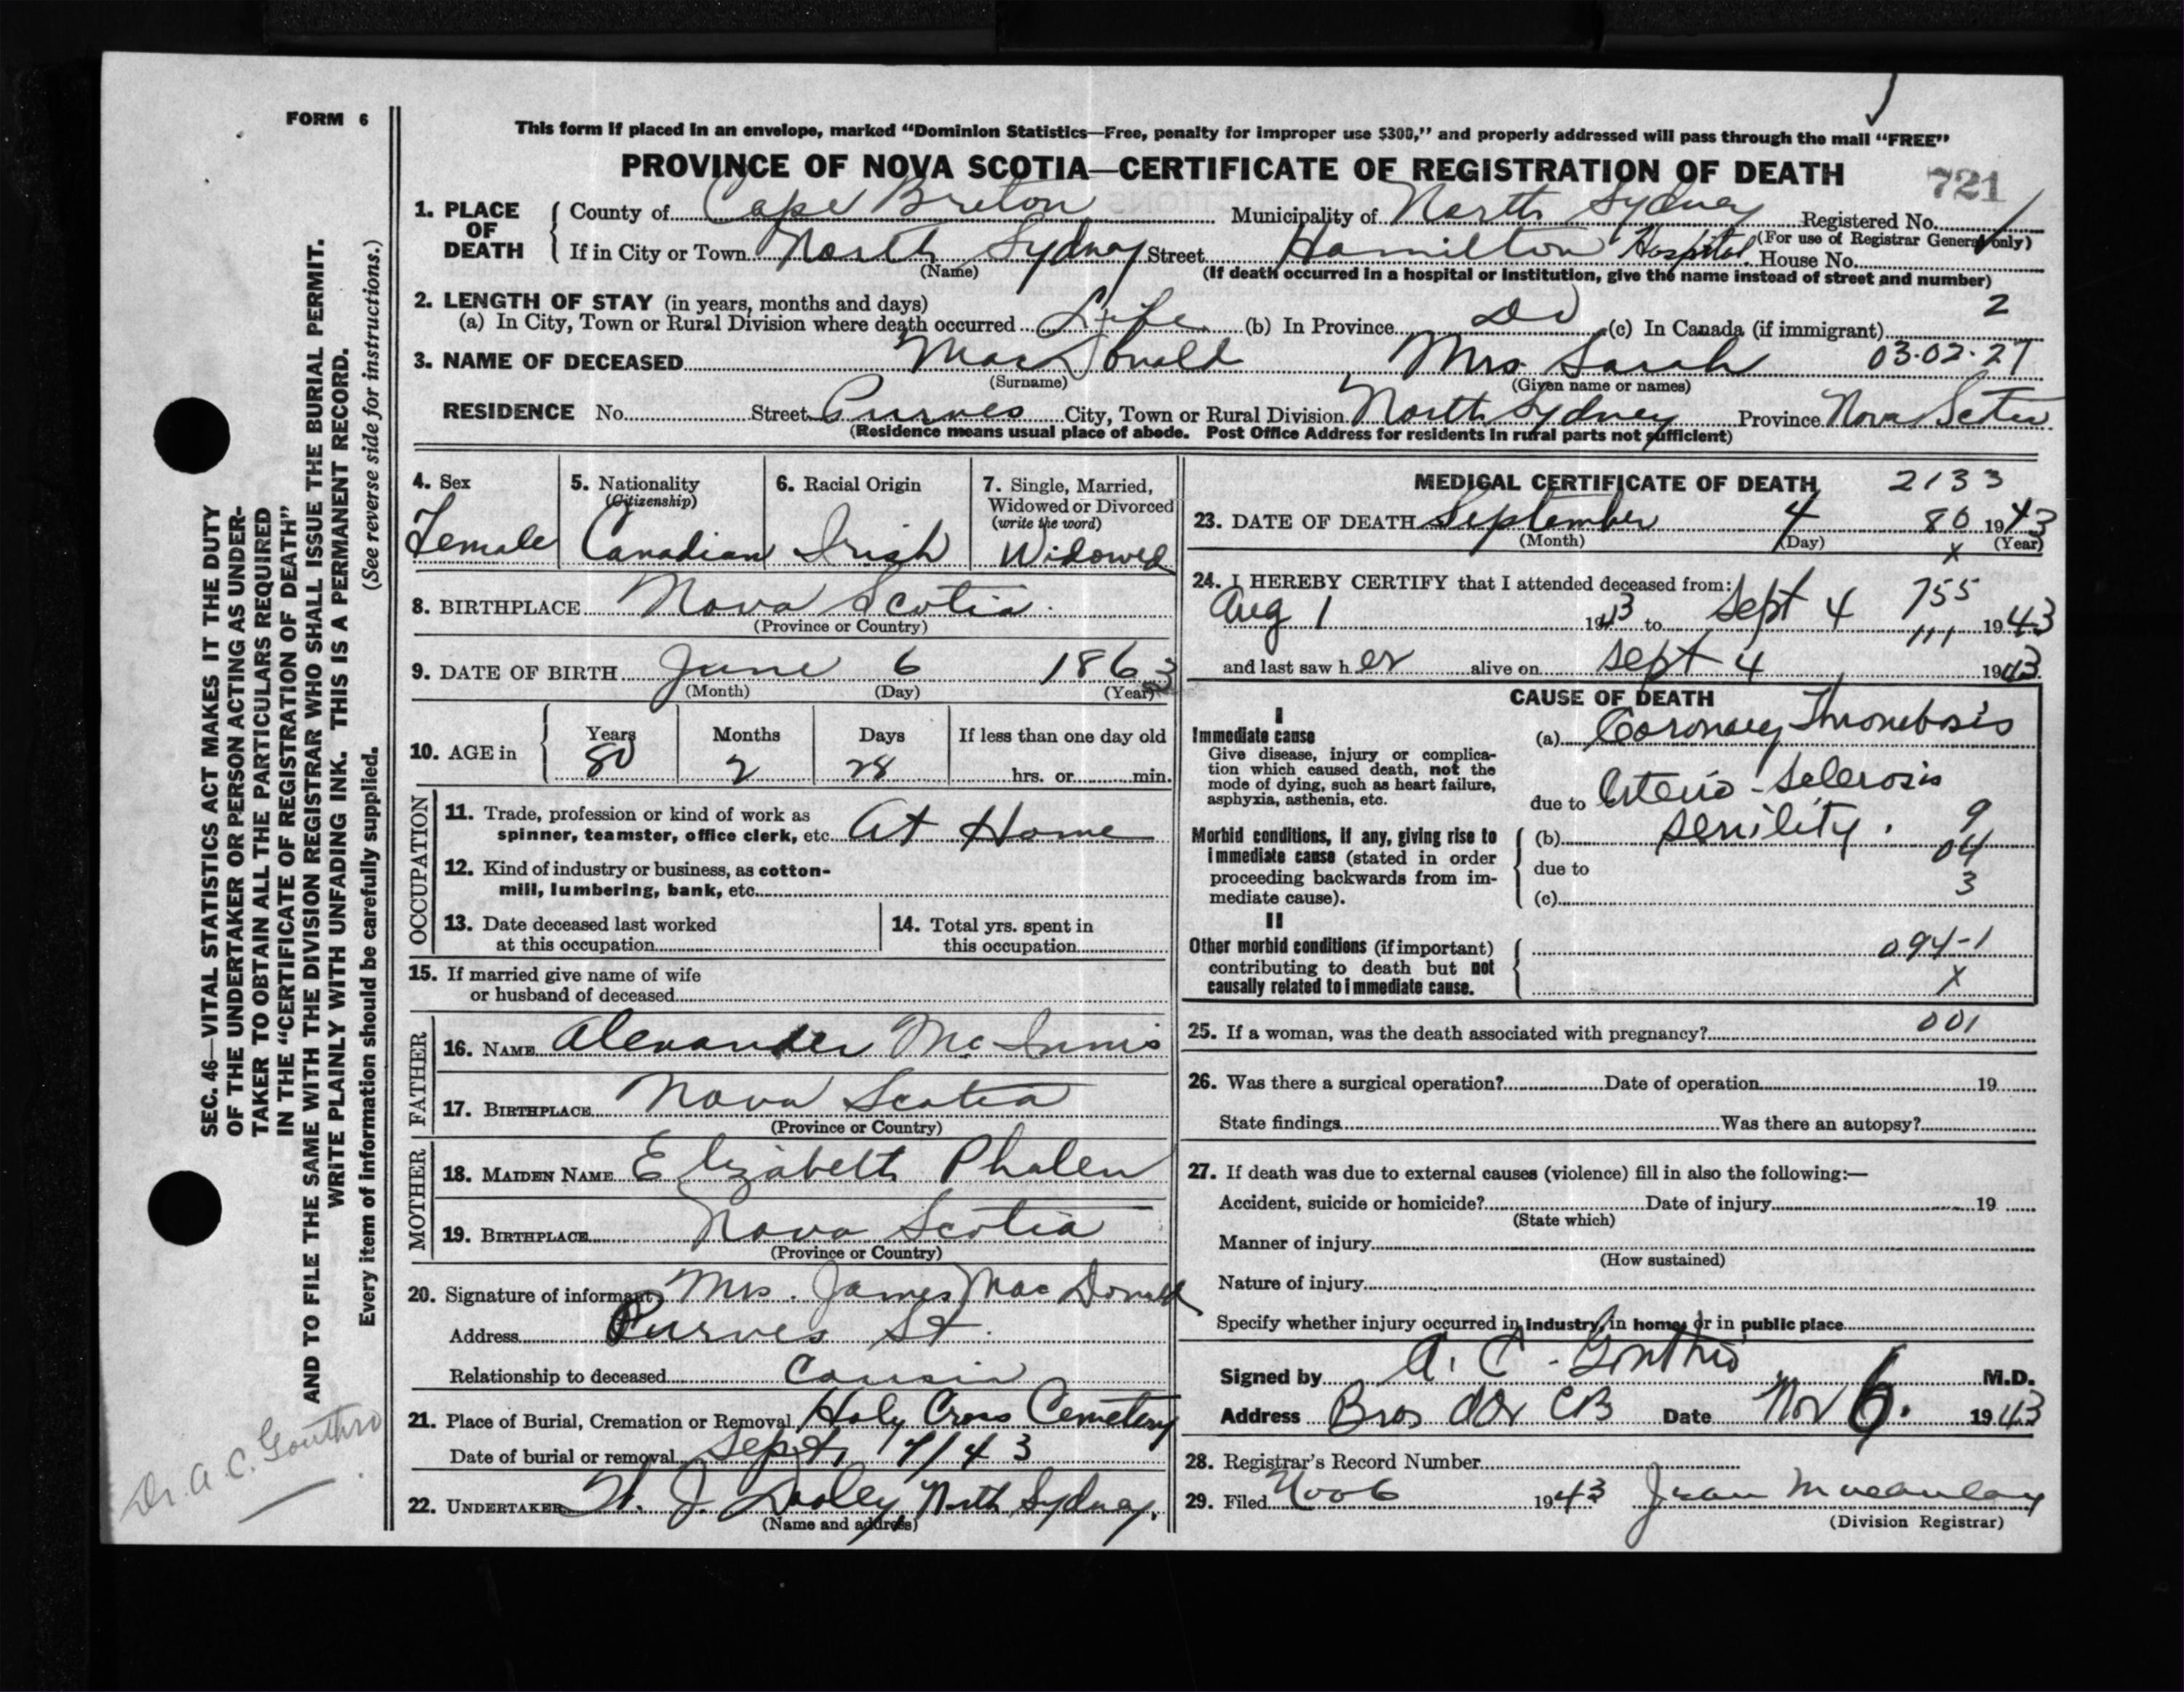 FORM 6
This form if placed in an envelope, marked “Dominion Statistics—Free, penalty for improper use $300,” and properly addressed will pass through the mail “FREE”
PROVINCE OF NOVA SCOTIA—CERTIFICATE OF REGISTRATION OF DEATH
721
1. PLACE OF DEATH County of Cape Breton Municipality of North Sydney Registered No.
(For use of Registrar General only)
If in City or Town North Sydney Street Hamilton Hospital House No.
(Name) (If death occurred in a hospital or institution, give the name instead of street and number)
2. LENGTH OF STAY (in years, months and days) 2
(a) In City, Town or Rural Division where death occurred Life (b) In Province Do (c) In Canada (if immigrant)
3. NAME OF DECEASED MacDonald Mrs. Sarah 03-02-27
(Surname) (Given name or names)
RESIDENCE No. Street Purves City, Town or Rural Division North Sydney Province Nova Scotia
(Residence means usual place of abode. Post Office Address for residents in rural parts not sufficient)
4. Sex Female
5. Nationality (Citizenship) Canadian
6. Racial Origin Irish
7. Single, Married, Widowed or Divorced (write the word) Widowed
8. BIRTHPLACE Nova Scotia
(Province or Country)
9. DATE OF BIRTH June 6 1863
(Month) (Day) (Year)
10. AGE in Years 80 Months 2 Days 28 If less than one day old
hrs. or min.
OCCUPATION
11. Trade, profession or kind of work as
spinner, teamster, office clerk, etc. At Home
12. Kind of industry or business, as cotton-
mill, lumbering, bank, etc.
13. Date deceased last worked
at this occupation
14. Total yrs. spent in
this occupation
15. If married give name of wife
or husband of deceased
FATHER
16. NAME Alexander McInnis
17. BIRTHPLACE Nova Scotia
(Province or Country)
MOTHER
18. MAIDEN NAME Elizabeth Phalen
19. BIRTHPLACE Nova Scotia
(Province or Country)
20. Signature of informant Mrs. James MacDonald
Address Purves St.
Relationship to deceased Cousin
21. Place of Burial, Cremation or Removal Holy Cross Cemetery
Date of burial or removal Sept, 7/43
22. UNDERTAKER J. Dooley North Sydney.
(Name and address)
MEDICAL CERTIFICATE OF DEATH 2133
23. DATE OF DEATH September 4 80 1943
(Month) (Day) x (Year)
24. I HEREBY CERTIFY that I attended deceased from: 755
Aug 1 1943 to Sept 4 1943
111
and last saw h er alive on Sept 4 1943
CAUSE OF DEATH
I
Immediate cause
Give disease, injury or complica-
tion which caused death, not the
mode of dying, such as heart failure,
asphyxia, asthenia, etc.
(a) Coronary Thrombosis
due to Arterio-Sclerosis
Morbid conditions, if any, giving rise to
immediate cause (stated in order
proceeding backwards from im-
mediate cause).
(b) senility. 9
04
due to
3
(c)
II
Other morbid conditions (if important)
contributing to death but not
causally related to immediate cause.
094-1
X
25. If a woman, was the death associated with pregnancy? 001
26. Was there a surgical operation? Date of operation 19
State findings Was there an autopsy?
27. If death was due to external causes (violence) fill in also the following:—
Accident, suicide or homicide? Date of injury 19
(State which)
Manner of injury
(How sustained)
Nature of injury
Specify whether injury occurred in industry, in home, or in public place
Signed by A. C. Gouthro M.D.
Address Bras d'Or CB Date Nov 6. 1943
28. Registrar's Record Number
29. Filed Nov 6 1943 Jean Macaulay
(Division Registrar)
SEC. 46—VITAL STATISTICS ACT MAKES IT THE DUTY
OF THE UNDERTAKER OR PERSON ACTING AS UNDER-
TAKER TO OBTAIN ALL THE PARTICULARS REQUIRED
IN THE “CERTIFICATE OF REGISTRATION OF DEATH”
AND TO FILE THE SAME WITH THE DIVISION REGISTRAR WHO SHALL ISSUE THE BURIAL PERMIT.
WRITE PLAINLY WITH UNFADING INK. THIS IS A PERMANENT RECORD.
Every item of information should be carefully supplied. (See reverse side for instructions.)
Dr. A. C. Gouthro